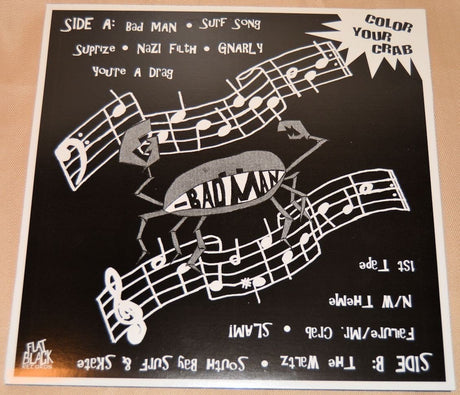 SIDE A: BAD MAN • SURF SONG
SUPRIZE • NAZI FILTH • GNARLY
YOU'RE A DRAG
COLOR
YOUR
CRAB
BAD MAN
SIDE B: THE WALTZ • SOUTH BAY SURF & SKATE
FAILURE/MR. CRAB • SLAM!
N/W THEME
1ST TAPE
FLAT
BLACK
RECORDS